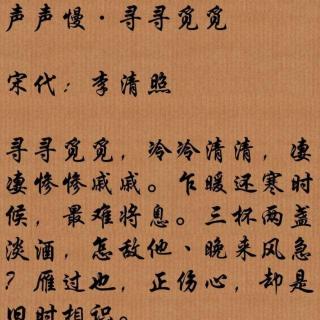 声声慢·寻寻觅觅
宋代：李清照
寻寻觅觅，冷冷清清，凄
凄惨惨戚戚。乍暖还寒时
候，最难将息。三杯两盏
淡酒，怎敌他、晚来风急
？雁过也，正伤心，却是
旧时相识。